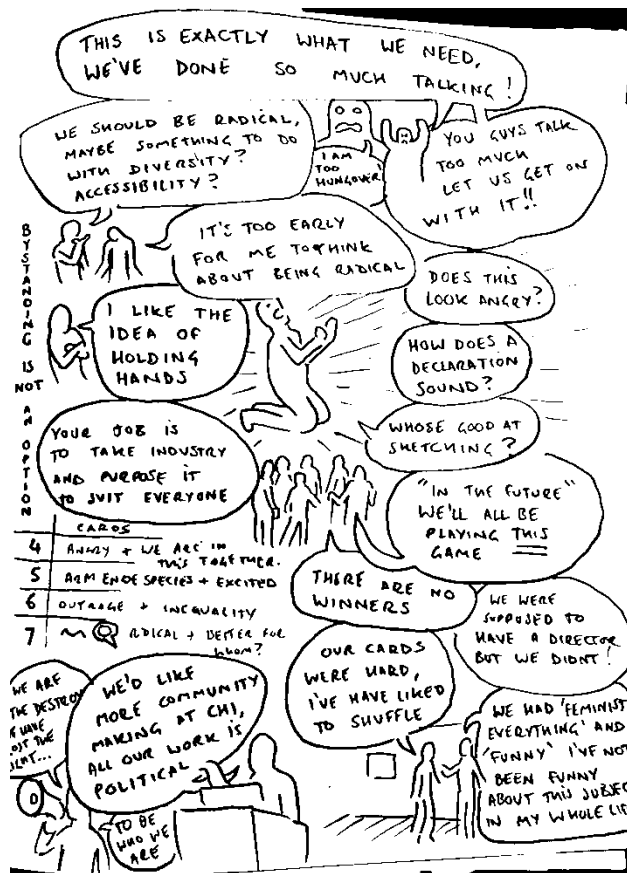 THIS IS EXACTLY WHAT WE NEED,
WE'VE DONE SO MUCH TALKING!
WE SHOULD BE RADICAL,
MAYBE SOMETHING TO DO
WITH DIVERSITY?
ACCESSIBILITY?
I AM
TOO
HUNGOVER
YOU GUYS TALK
TOO MUCH
LET US GET ON
WITH IT!!
IT'S TOO EARLY
FOR ME TO THINK
ABOUT BEING RADICAL
BYSTANDING IS NOT AN OPTION
DOES THIS
LOOK ANGRY?
I LIKE THE
IDEA OF
HOLDING
HANDS
HOW DOES A
DECLARATION
SOUND?
WHOSE GOOD AT
SKETCHING?
YOUR JOB IS
TO TAKE INDUSTRY
AND PURPOSE IT
TO SUIT EVERYONE
"IN THE FUTURE"
WE'LL ALL BE
PLAYING THIS
GAME
CARDS
4 ANGRY + WE ARE IN
THIS TOGETHER.
5 SPECIES + EXCITED
6 OUTRAGE + INEQUALITY
7 RDICAL + BETTER FOR
WHOM?
THERE ARE NO
WINNERS
WE WERE
SUPPOSED TO
HAVE A DIRECTOR
BUT WE DIDNT!
OUR CARDS
WERE HARD,
I'VE HAVE LIKED
TO SHUFFLE
WE ARE
THE DESTROY
HAVE
THE
WE'D LIKE
MORE COMMUNITY
MAKING AT CHI,
ALL OUR WORK IS
POLITICAL
TO BE
WHO WE
ARE
WE HAD 'FEMINIST
EVERYTHING' AND
'FUNNY' I'VE NOT
BEEN FUNNY
ABOUT THIS SUBJEC
IN MY WHOLE LI